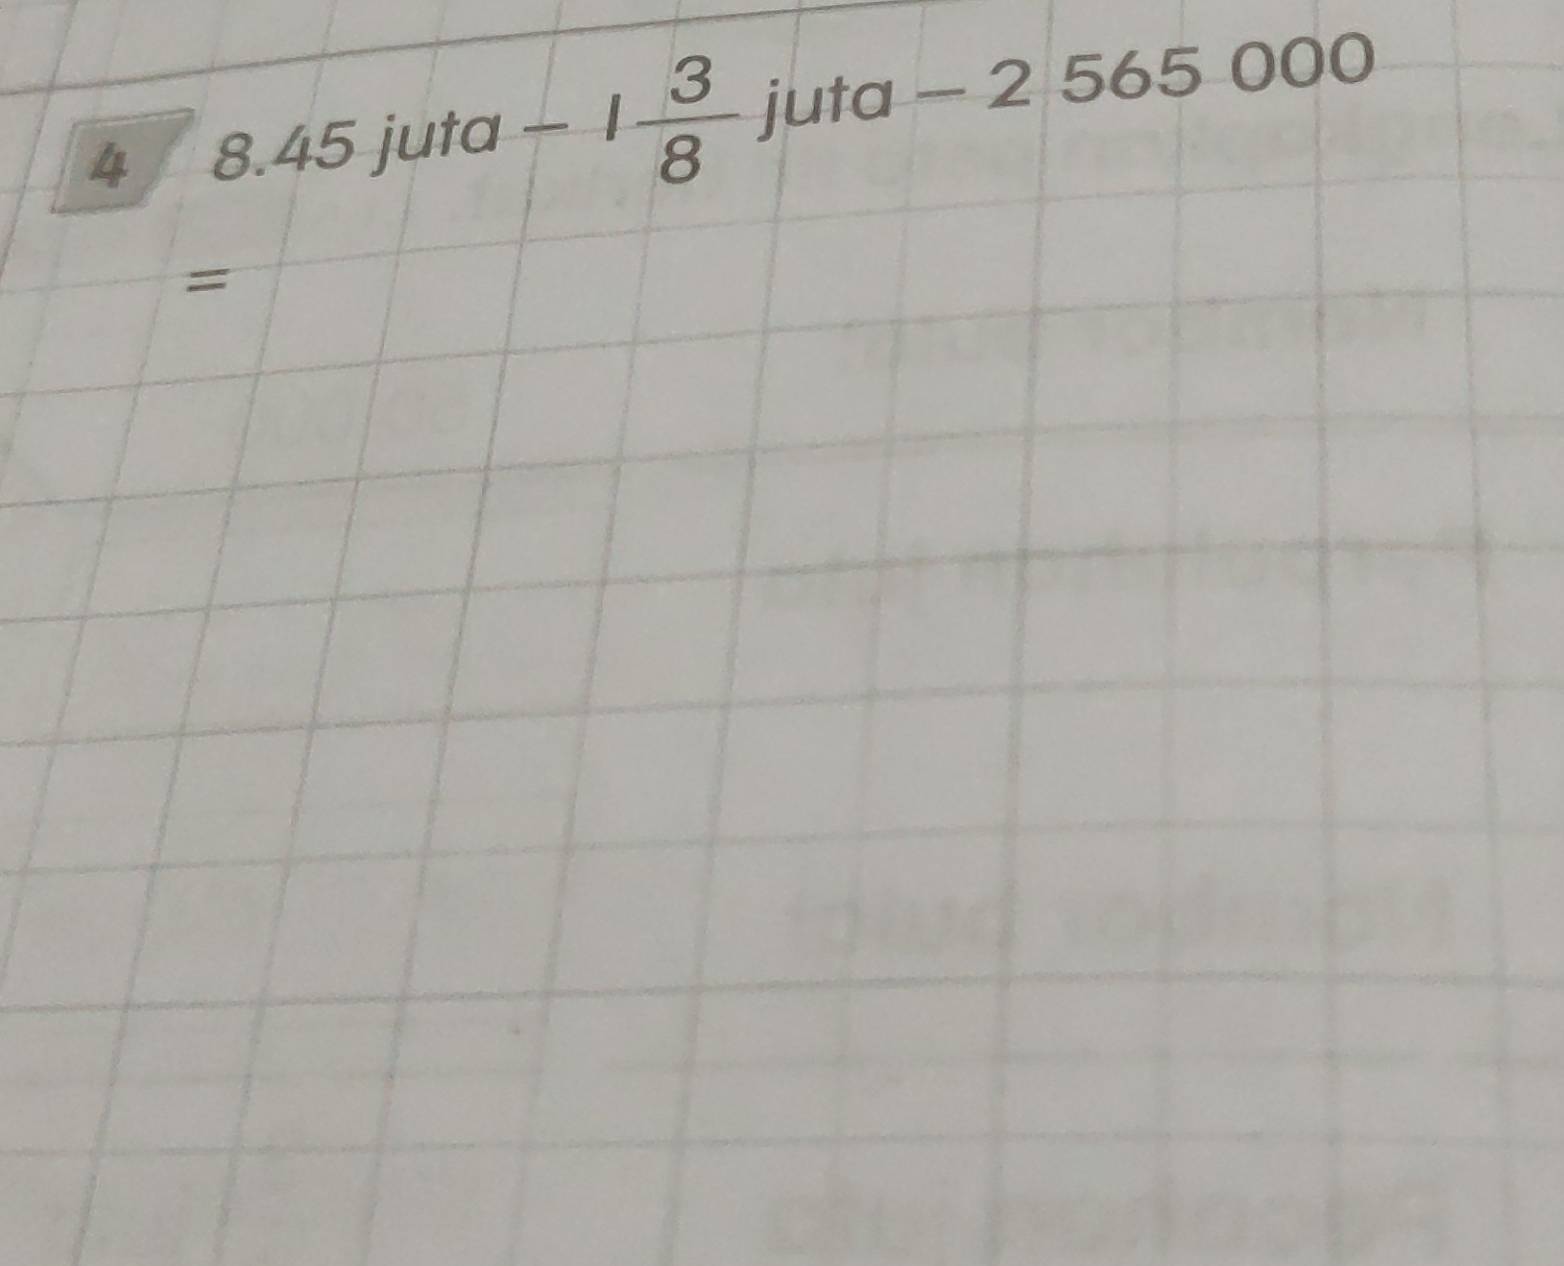 4 8.45 juta – 1 3/8 juta – 2 565 000
=